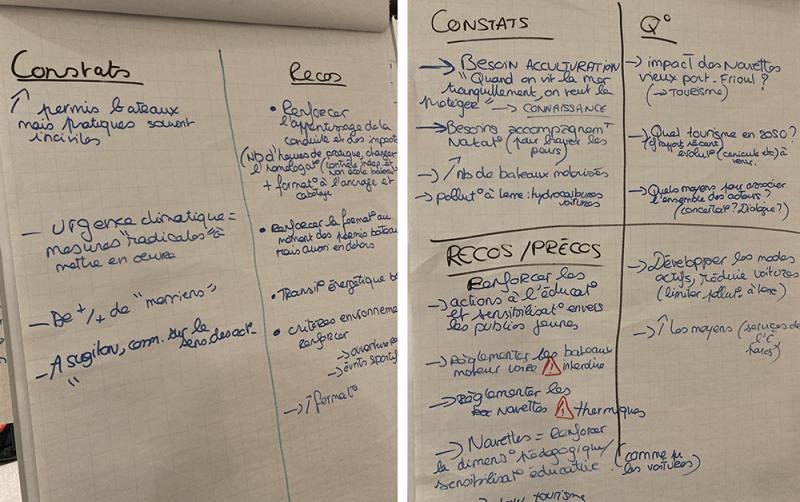 Constats
↗ permis bateaux
mais pratiques souvent
inciviles
- urgence climatique =
mesures "radicales" à
mettre en oeuvre
- De +/+ de "merriens"
- A sugiton, comm. sur le
Recos
• Renforcer
l'apprentissage de la
conduite et des impacts
(Nb d'heures de pratique, changer
+ format° à l'ancrage et
• Renforcer la format° au
moment des permis bateau
mais aussi en dehors
• Transit° énergétique
• Critères environneme
renforcer
→ ouverture
→ évnts sportif
→ ↑ format°
CONSTATS
→ BESOIN ACCULTURATION
"Quand on vit la mer
tranquillement, on veut la
protéger" → CONNAISSANCE
→ Besoins accompagnemt
Natat° (pour
→ ↗ Nb de bateaux motorisés
→ pollut° à terre : hydrocarbures
voitures
Q°
→ impact des Navettes
vieux port - Frioul ?
(→ TOURISME)
→ Quel tourisme en 2050 ?
évolut° (canicule etc) à
→ Quels moyens pour associer
l'ensemble des acteurs ?
(concertat° ? Dialogue ?)
RECOS / PRÉCOS
Renforcer les
→ actions à l'éducat°
et sensibilisat° envers
les publics jeunes
→ Règlementer les bateaux
moteur voire ! interdire
→ Règlementer les
Navettes ! thermiques
→ Navettes = Renforcer
la dimens° pédagogique/
sensibilisat° éducative
(comme pr
les voitures)
tourisme
→ Développer les modes
actifs, réduire voitures
(limiter pollut° à terre)
→ ↑ les moyens (services de
l'É
parcs)